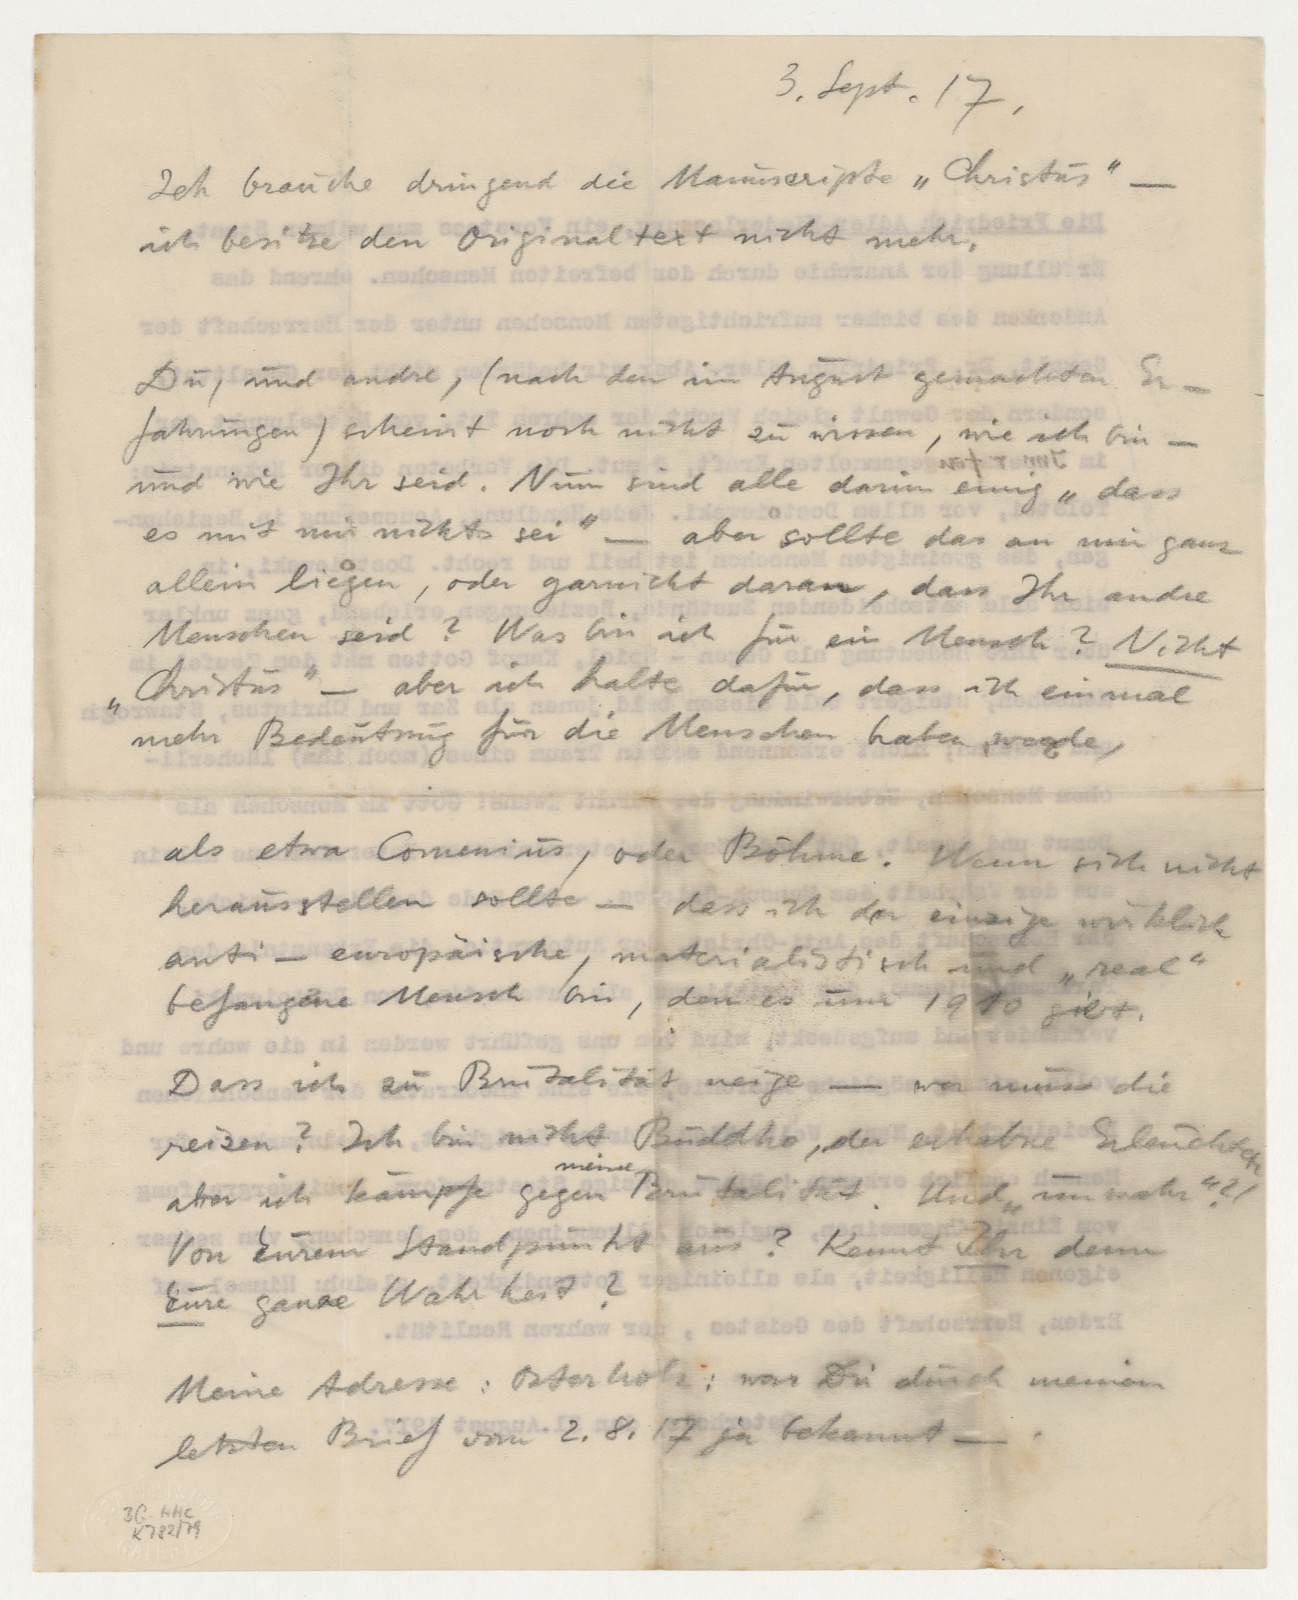 3. Sept. 17.
Ich brauche dringend die Manuscripte „Christus" —
ich besitze den Originaltext nicht mehr.
Du, und andre, (nach den im August gemachten Er-
fahrungen) scheint noch nicht zu wissen, wie ich bin —
und wie Ihr seid. Nun sind alle darin einig „dass
es mit mir nichts sei" — aber sollte das an mir ganz
allein liegen, oder garnicht daran, dass Ihr andre
Menschen seid? Was bin ich für ein Mensch? Nicht
„Christus" — aber ich halte dafür, dass ich einmal
mehr Bedeutung für die Menschen haben werde,
als etwa Comenius, oder Böhme. Wenn sich nicht
herausstellen sollte — dass ich der einzige wirklich
anti-europäische, materialistisch und „real"
befangene Mensch bin, den es um 1910 gibt.
Dass ich zu Brutalität neige — wer muss die
reizen? Ich bin nicht Buddho, der erhabne Erleuchtete
aber ich kämpfe gegen meine Brutalität. Und „unwahr"?!
Von Eurem Standpunkt aus? Kennt Ihr denn
Eure ganze Wahrheit?
Meine Adresse: Osterholz: war Dir durch meinen
letzten Brief vom 2. 8. 17 ja bekannt — .
BG-HHC
K 782/79